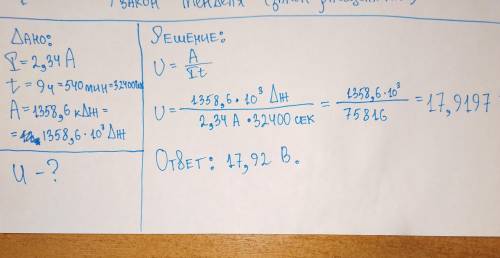 закон
Дано:
I = 2,34 А
t = 9ч = 540 мин = 32400
А = 1358,6 кДж =
= 1358,6 · 10³ Дж
U - ?
Решение:
U = А / It
U = 1358,6 · 10³ Дж / 2,34 А · 32400 сек = 1358,6 · 10³ / 75816 = 17,9197
Ответ: 17,92 В.